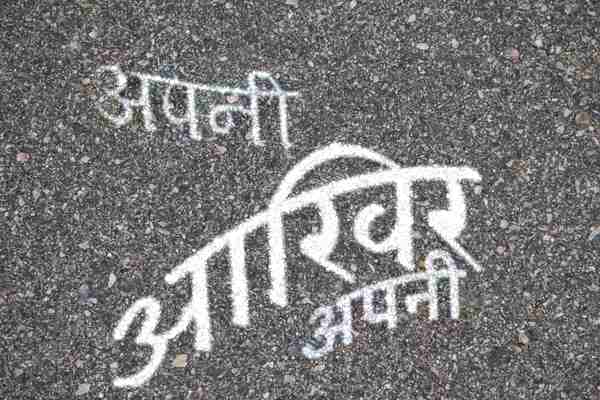 अपनी
आखिर
अपनी